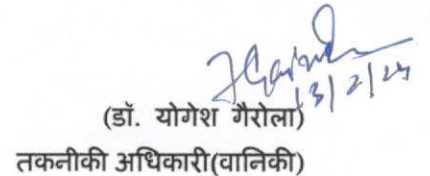 13/2/24
(डॉ. योगेश गैरोला)
तकनीकी अधिकारी(वानिकी)